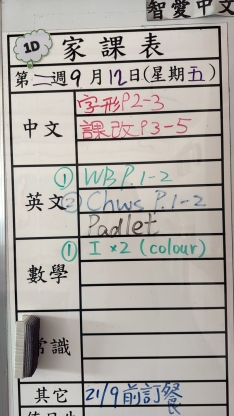 智愛中文
1D 家課表
第二週9月12日(星期五)
中文 字形P2-3
課改P3-5
英文 ① WB P.1-2
② Chws P.1-2
Padlet
數學 ① I×2 (colour)
常識
其它 21/9前訂餐